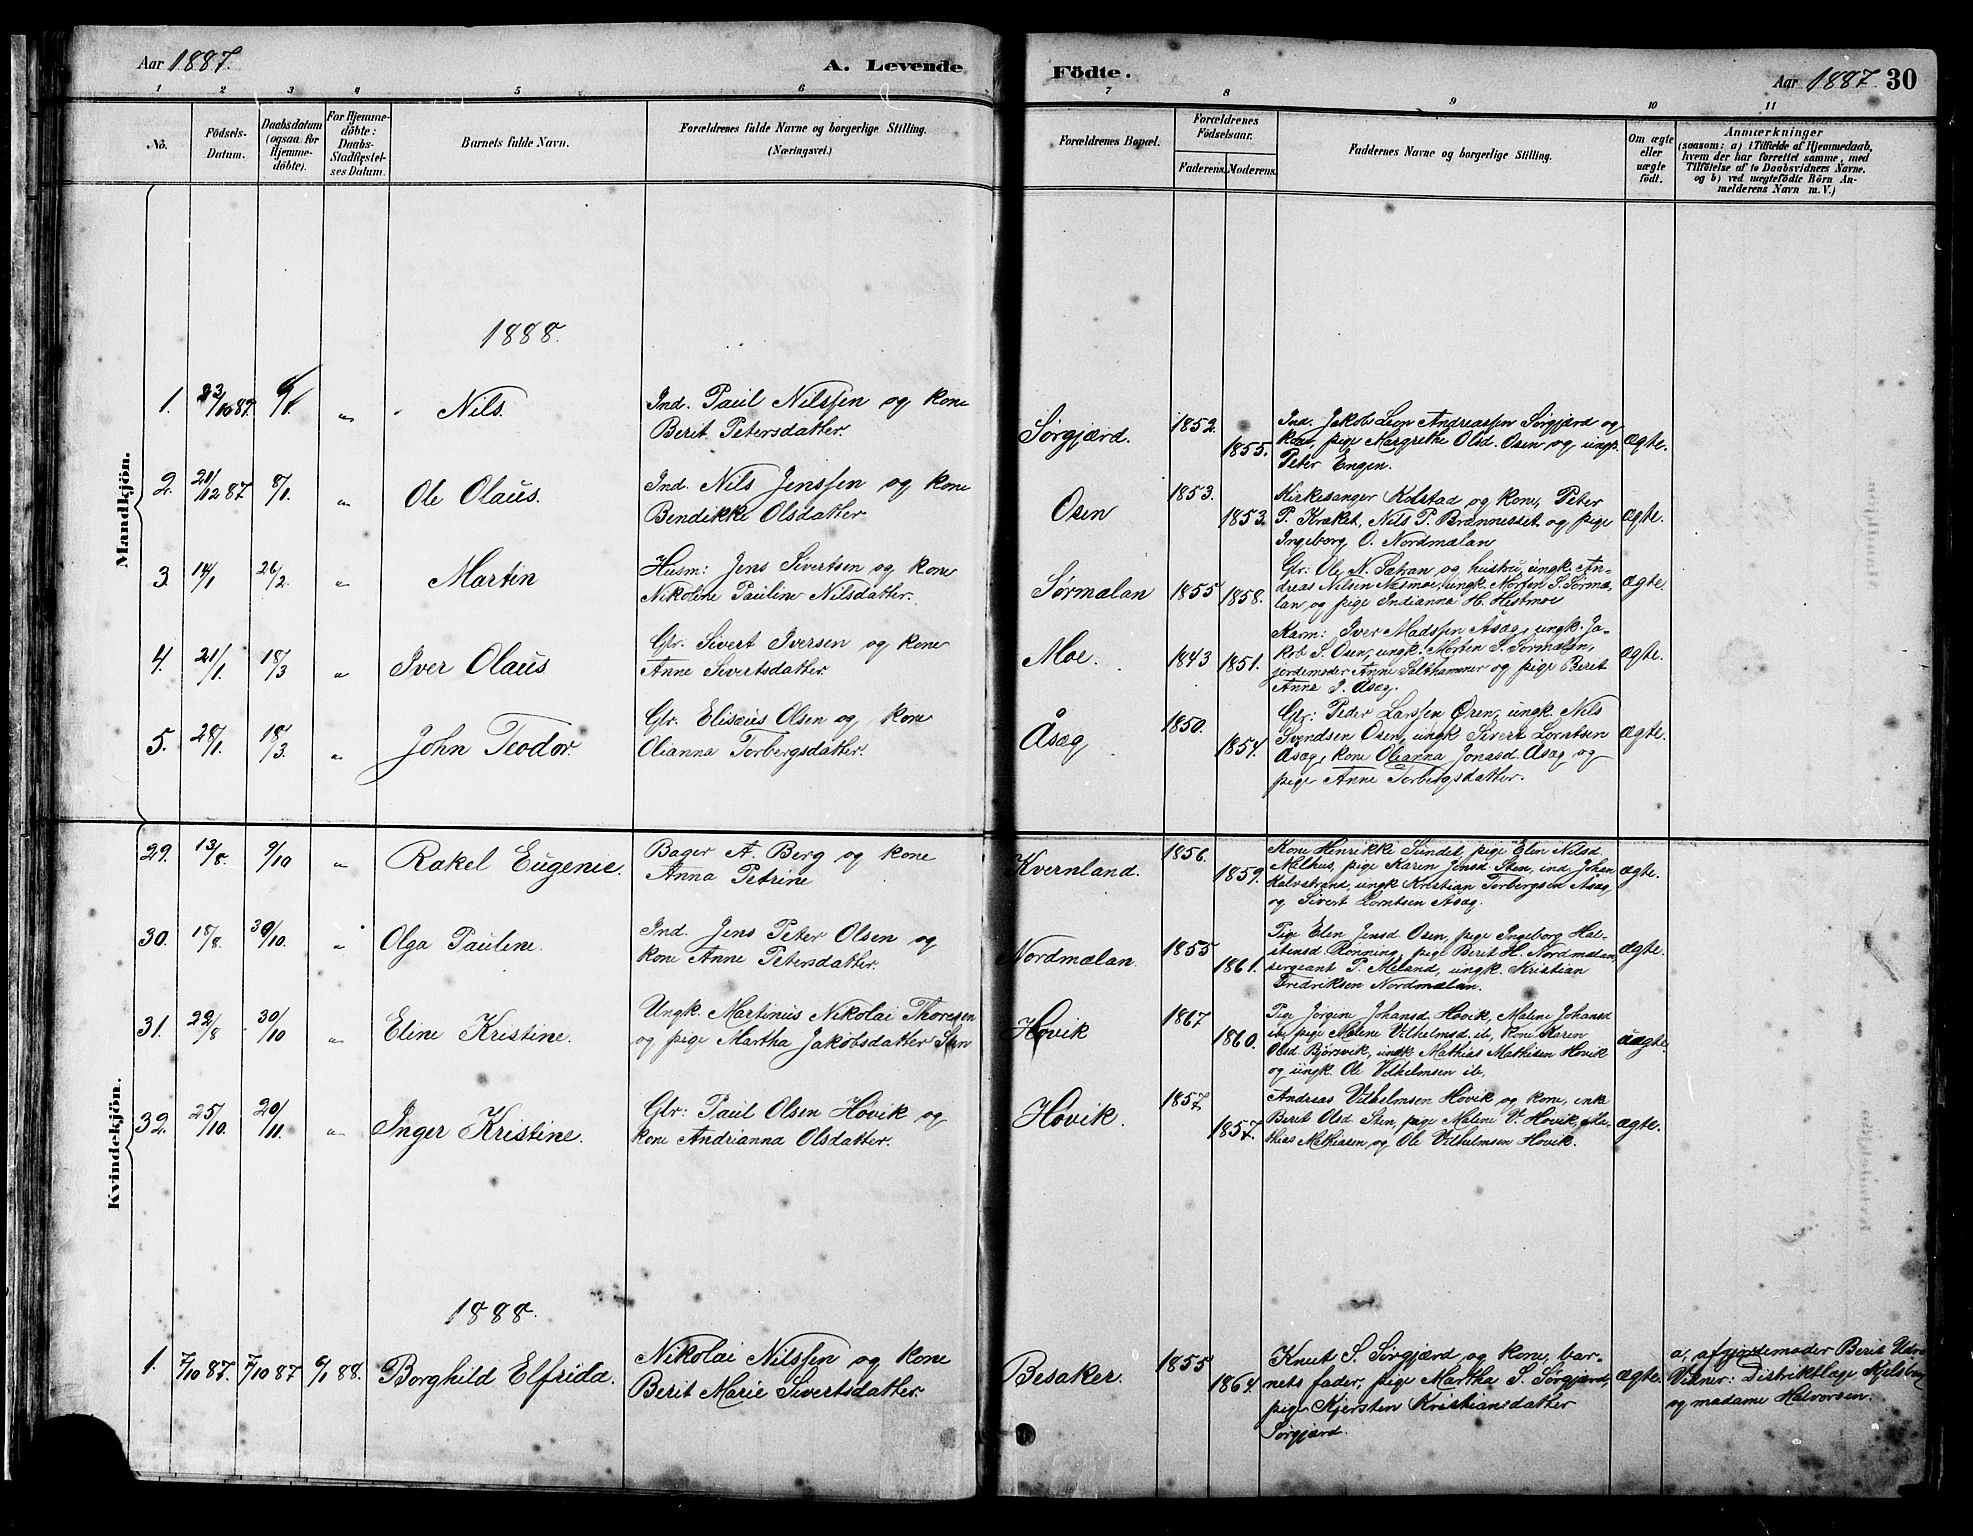 Aar 1887.
A. Levende
Födte.
Aar 1887. 30
1 2 3 4 5 6 7 8 9 10 11
No.
Födsels-
Datum.
Daabsdatum
(ogsaa for
Hjemme-
döbte).
For Hjemme-
döbte:
Daabs-
Stadfæstel-
ses Datum.
Barnets fulde Navn.
Forældrenes fulde Navne og borgerlige Stilling.
(Næringsvei.)
Forældrenes Bopæl.
Forældrenes
Födselsaar.
Faderens. Moderens.
Faddernes Navne og borgerlige Stilling.
Om ægte
eller
uægte
födt.
Anmærkninger
(saasom: a) i Tilfælde af Hjemmedaab,
hvem der har forrettet samme, med
Tilföielse af to Daabsvidners Navne.
og b) ved uægtefödte Börn An-
melderens Navn m.V.)
Mandkjön.
1888.
1. 23/10 87. 6/1. " Nils.
Ind. Paul Nilssen og kone
Berit Petersdatter.
Sørgjærd.
1852.
1855.
Ind. Jakob Leon Andreassen Sørgjærd og
kone, pige Margrethe Olsd. Osen og ungk.
Peter Engen.
ægte.
2. 21/12 87 8/1. " Ole Olaus.
Ind. Nils Jenssen og kone
Bendikke Olsdatter
Osen
1853.
1853.
Kirkesanger Kolstad og kone, Peter
P. Kræket, Nils P. Brannesset og pige
Ingeborg O. Nordmælan
ægte.
3. 14/1 26/2. " Martin
Husm: Jens Sivertsen og kone
Nikoline Pauline Nilsdatter.
Sørmælan
1855
1858.
Gbr: Ole N. Sætran og hustru, ungk. An-
dreas Nilsen Næsmoe, ungk. Morten S. Sørmæ-
lan, og pige Indianna H. Hestmoe
ægte.
4. 21/1. 18/3 " Iver Olaus
Gbr. Sivert Iversen og kone
Anne Sivertsdatter.
Moe.
1843
1851.
Kaarm: Iver Madssen Åsæg, ungk. Ja-
kob S. Osen, ungk. Morten S. Sørmælan,
jordemoder Anne Salthammer og pige Berit
Anna J. Åsæg.
ægte.
5. 28/1. 18/3. " John Teodor.
Gbr. Elisæus Olsen og kone
Olianna Torbergsdatter.
Åsæg
1850.
1854.
Gbr: Peder Larssen Ören, ungk. Nils
Svendsen Osen, ungk Sivert Lorntsen
Åsæg, kone Olianna Jonasd. Åsæg og
pige Anne Torbergsdatter.
ægte.
Kvindekjön.
29. 13/8. 9/10 " Rakel Eugenie.
Bager A. Berg og kone
Anna Petrine
Kvernland.
1856.
1859.
Kone Henrikke Sundet, pige Elin Nilsd
Melhus, pige Karen Jensd Sten, ind. Johan
Kalvstrand, ungk Kristian Torbergsen Åsæg
og Sivert Lorntsen Åsæg.
ægte.
30. 18/8. 30/10. " Olga Pauline.
Ind. Jens Peter Olsen og
kone Anne Petersdatter.
Nordmælan.
1855
1861.
Pige Elen Jensd Osen, pige Ingeborg Hal-
stensd Rønning, pige Berit H. Nordmælan,
sergeant P. Meland, ungk. Kristian
Fredriksen Nordmælan.
ægte.
31. 22/8 30/10 " Eline Kristine.
Ungk. Martinus Nikolai Thoresen
og pige Martha Jakobsdatter Sten
Høvik
1867
1860.
Pige Jörgine Johansd. Høvik, Maline Johansd
ib, pige Maline Vilhelmsd. ib, kone Karen
Olsd. Bjørsvik, ungk Mathias Mathisen Hovik
og ungk. Ole Vilhelmsen ib.
uægte.
32. 25/10. 20/11. " Inger Kristine.
Gbr: Paul Olsen Hövik og
kone Andrianna Olsdatter.
Høvik.
1857.
1857.
Andreas Vilhelmsen Høvik og kone, enke
Berit Olsd Sten, pige Maline V. Hövik, Ma-
thias Mathisen, og Ole Vilhelmsen Høvik.
ægte.
1888.
1. 7/10 87. 7/10 87 6/1 88. Borghild Elfrida.
Nikolai Nilssen og kone
Berit Marie Sivertsdatter.
Besaker.
1855
1864.
Knut S. Sørgjærd og kone, bar-
nets fader, pige Martha S. Sørgjærd,
pige Kjersten Kristiansdatter
Sørgjærd.
ægte.
a, af jordemoder Berit
Vidner: Distriktlæge Kjelsberg
og madame Halvorsen.